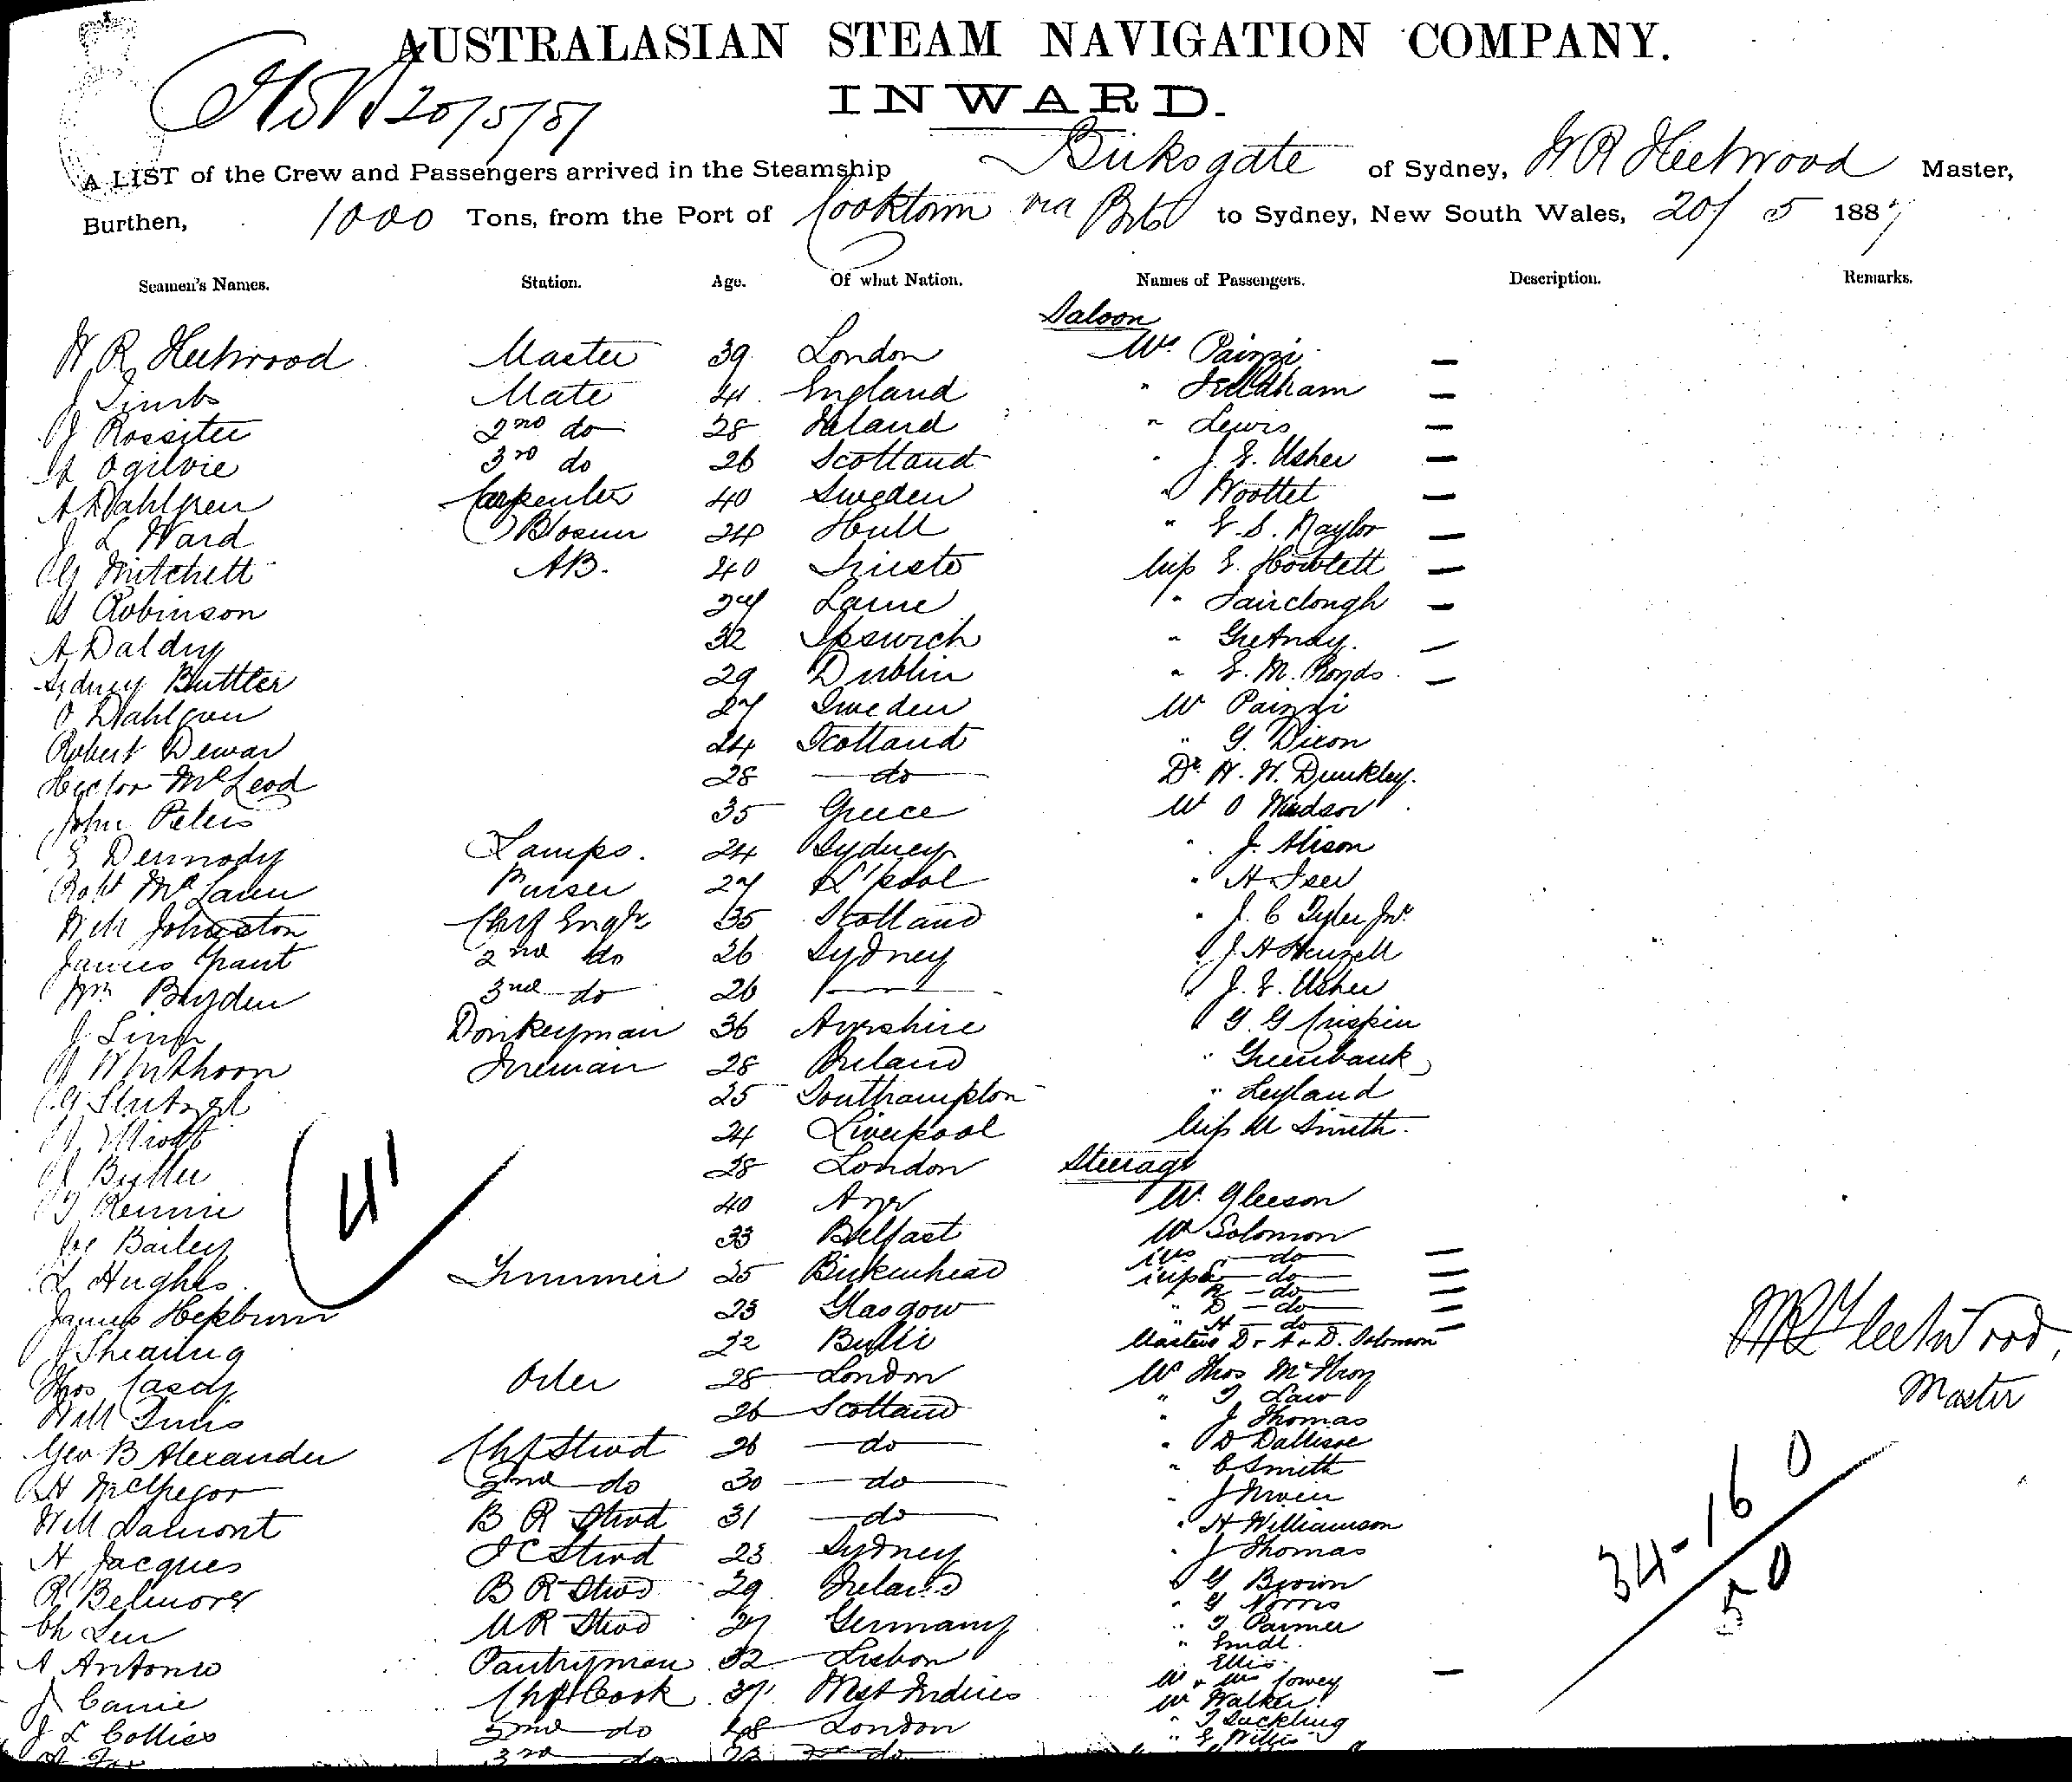 AUSTRALASIAN STEAM NAVIGATION COMPANY.
20/5/87
INWARD.
A LIST of the Crew and Passengers arrived in the Steamship Birksgate of Sydney, W R Fleetwood Master,
Burthen, 1000 Tons, from the Port of Cooktown via to Sydney, New South Wales, 20/ 5 1887
Seamen's Names. Station. Age. Of what Nation. Names of Passengers. Description. Remarks.
Saloon
W R Fleetwood Master 39 London Mrs Painzi —
J Mate 41 England " Feldham —
J Rossiter 2nd do 28 Ireland " Lewis —
A Ogilvie 3rd do 26 Scotland " J. E. Usher —
A Dahlgren Carpenter 40 Sweden " Woottet —
J L Ward Bosun 24 Hull " E. S. Naylor —
G Mitchell AB. 40 Trieste Miss E. Howlett —
Robinson 24 Larne " Fairclough —
A Daldry 32 Ipswich " Gretnay. —
Sydney Buttler 29 Dublin " E. M. Ronds —
O Dahlgren 27 Sweden Mr Painzi
Robert Dewar 24 Scotland " G. Dixon
Hector McLeod 28 do Dr. H. W. Dunkley.
John Peters 35 Greece Mr O Wadson
E Dermody Lamps. 24 Sydney " J. Alison
Robt McLaren Purser 27 L'pool " H Iser
Will Johnston Chf Engr 35 Scotland " J. C Tyler Jnr
James Grant 2nd do 26 Sydney " J. H Henzell
Wm Bryden 3rd do 26 — " J. E. Usher
J. Donkeyman 36 Ayrshire " G. G Crispin
J Fireman 28 Ireland " Greenbank
25 Southampton " Leyland
J Elliott 24 Liverpool Miss M Smith.
J Butler 28 London Steerage
J Rennie 40 Ayr W. Gleeson
Jos Bailey 33 Belfast Mr Solomon
L Hughes. Trimmer 25 Birkenhead Mrs — do —
Miss — do —
" R — do —
James Hepburn 23 Glasgow " D — do —
" H — do —
J Shearing 22 Bulli Masters D + A + D. Solomon
Thos Casey Oiler 28 London Mr Thos McIlroy
" J Law
Will Innis 26 Scotland " J Thomas
Geo B Alexander Chf Stwd 26 do " D Dallisre
" C Smith
H McGregor 2nd do 30 do " J Irwin
Will Lamont B R Stwd 31 do " H Williamson
H Jacques F C Stwd 23 Sydney " J Thomas
R Belmore B R Stwd 29 Ireland " G Brown
" G Norris
Ch Leu M R Stwd 27 Germany " J Parmer
" Emdl.
A Antonio Pantryman 32 Lisbon " Ellis
Mr + Mrs Cowey —
J Carrie Chf Cook 37 West Indies Mr Walker
" J Suckling
J L Colliss 2nd do 28 London " E Willis
A Fox 3rd do 23 do
41
W R Fleetwood,
Master
34-16 0
50